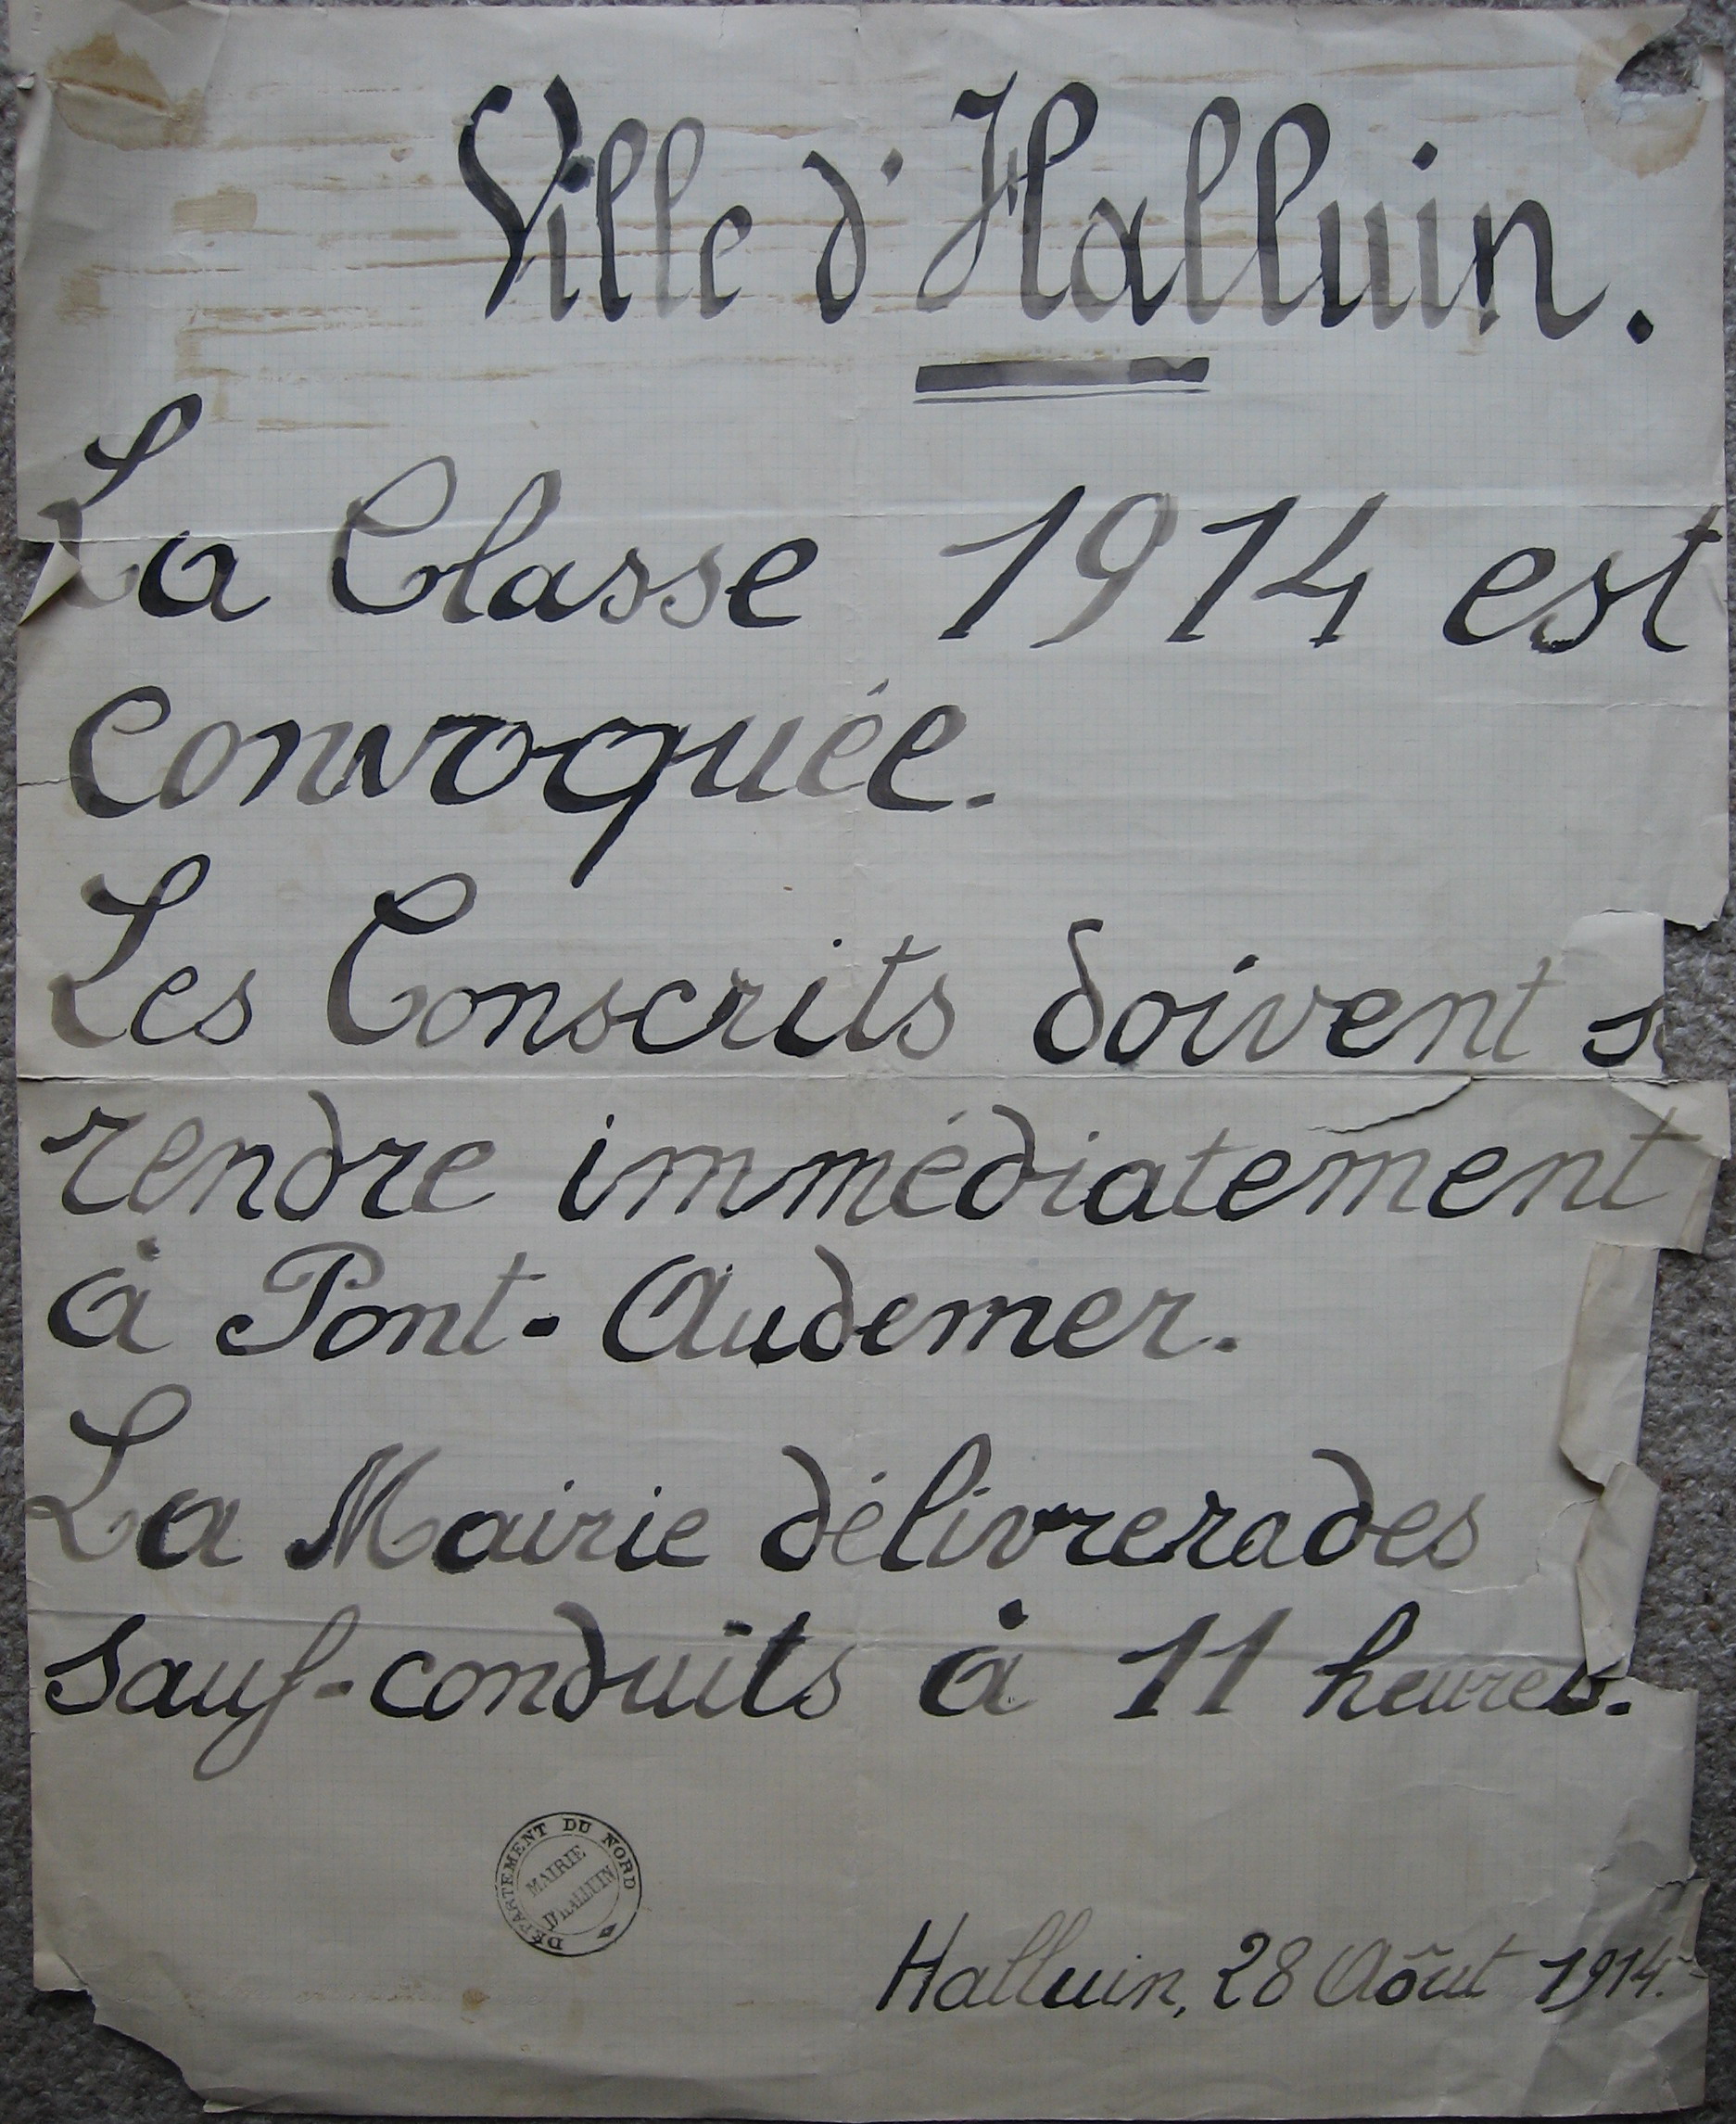 Ville d'Halluin.
La Classe 1914 est
convoquée.
Les Conscrits doivent se
rendre immédiatement
à Pont-Audemer.
La Mairie délivrera des
sauf-conduits à 11 heures.
DÉPARTEMENT DU NORD
MAIRIE
D'HALLUIN
Halluin, 28 Aôut 1914.